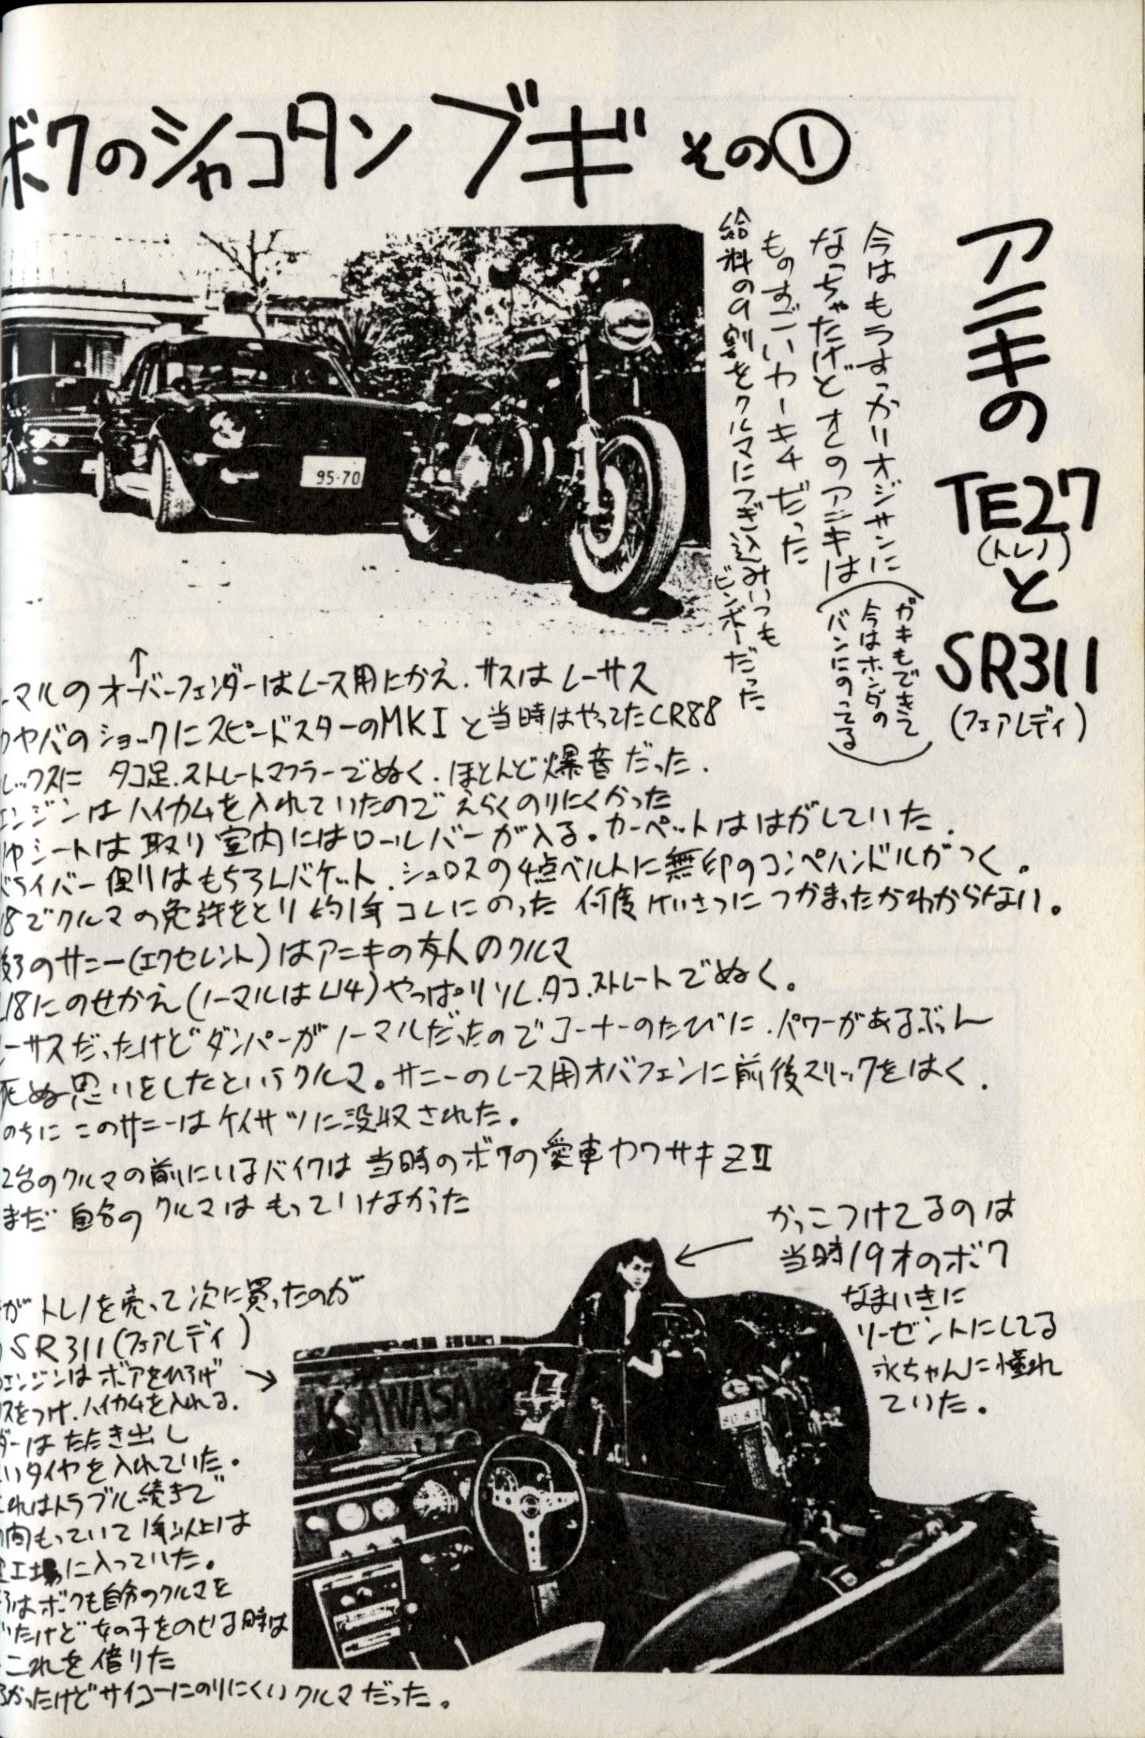 ボクのシャコタン ブギ その①
アニキの
TE27
(トレノ)
と
SR311
(フェアレディ)
今はもうすっかりオジサンに
なっちゃたけどオレのアニキは
(ガキもできて
今はホンダの
バンにのってる)
ものすごいカーキチだった
給料の9割をクルマにつぎ込みいつも
ビンボーだった
95-70
↑
ーマルのオーバーフェンダーはレース用にかえ.サスはレーサス
カヤバのショックにスピードスターのMKIと当時はやってたCR88
レックスに タコ足.ストレートマフラーでぬく.ほとんど爆音だった.
エンジンはハイカムを入れていたのでえらくのりにくかった
シートは取り室内にはロールバーが入る。カーペットははがしていた.
ドライバー側はもちろんバケット.シュロスの4点ベルトに無印のコンペハンドルがつく.
18でクルマの免許をとり約1年コレにのった 何度けいさつにつかまったかわからない.
後ろのサニー(エクセレント)はアニキの友人のクルマ
L18にのせかえ(ノーマルはL14)やっぱりソレ.タコ.ストレートでぬく。
ーサスだったけどダンパーがノーマルだったのでコーナーのたびに.パワーがあるぶん
死ぬ思いをしたというクルマ。サニーのレース用オバフェンに前後スリックをはく.
のちに このサニーはケイサツに没収された.
2台のクルマの前にいるバイクは当時のボクの愛車カワサキZⅡ
まだ自分のクルマはもっていなかった
かっこつけてるのは
当時19才のボク
なまいきに
リーゼントにしてる
永ちゃんに憧れ
ていた.
KAWASAKI
がトレノを売って次に買ったのが
SR311(フェアレディ)
エンジンはボアをひろげ
スをつけ.ハイカムを入れる.
ダーはたたき出し
いタイヤを入れていた.
これはトラブル続きで
間もっていて1年以上は
工場に入っていた.
ろはボクも自分のクルマを
いたけど女の子をのせる時は
これを借りた
かったけどサイコーにのりにくいクルマだった.